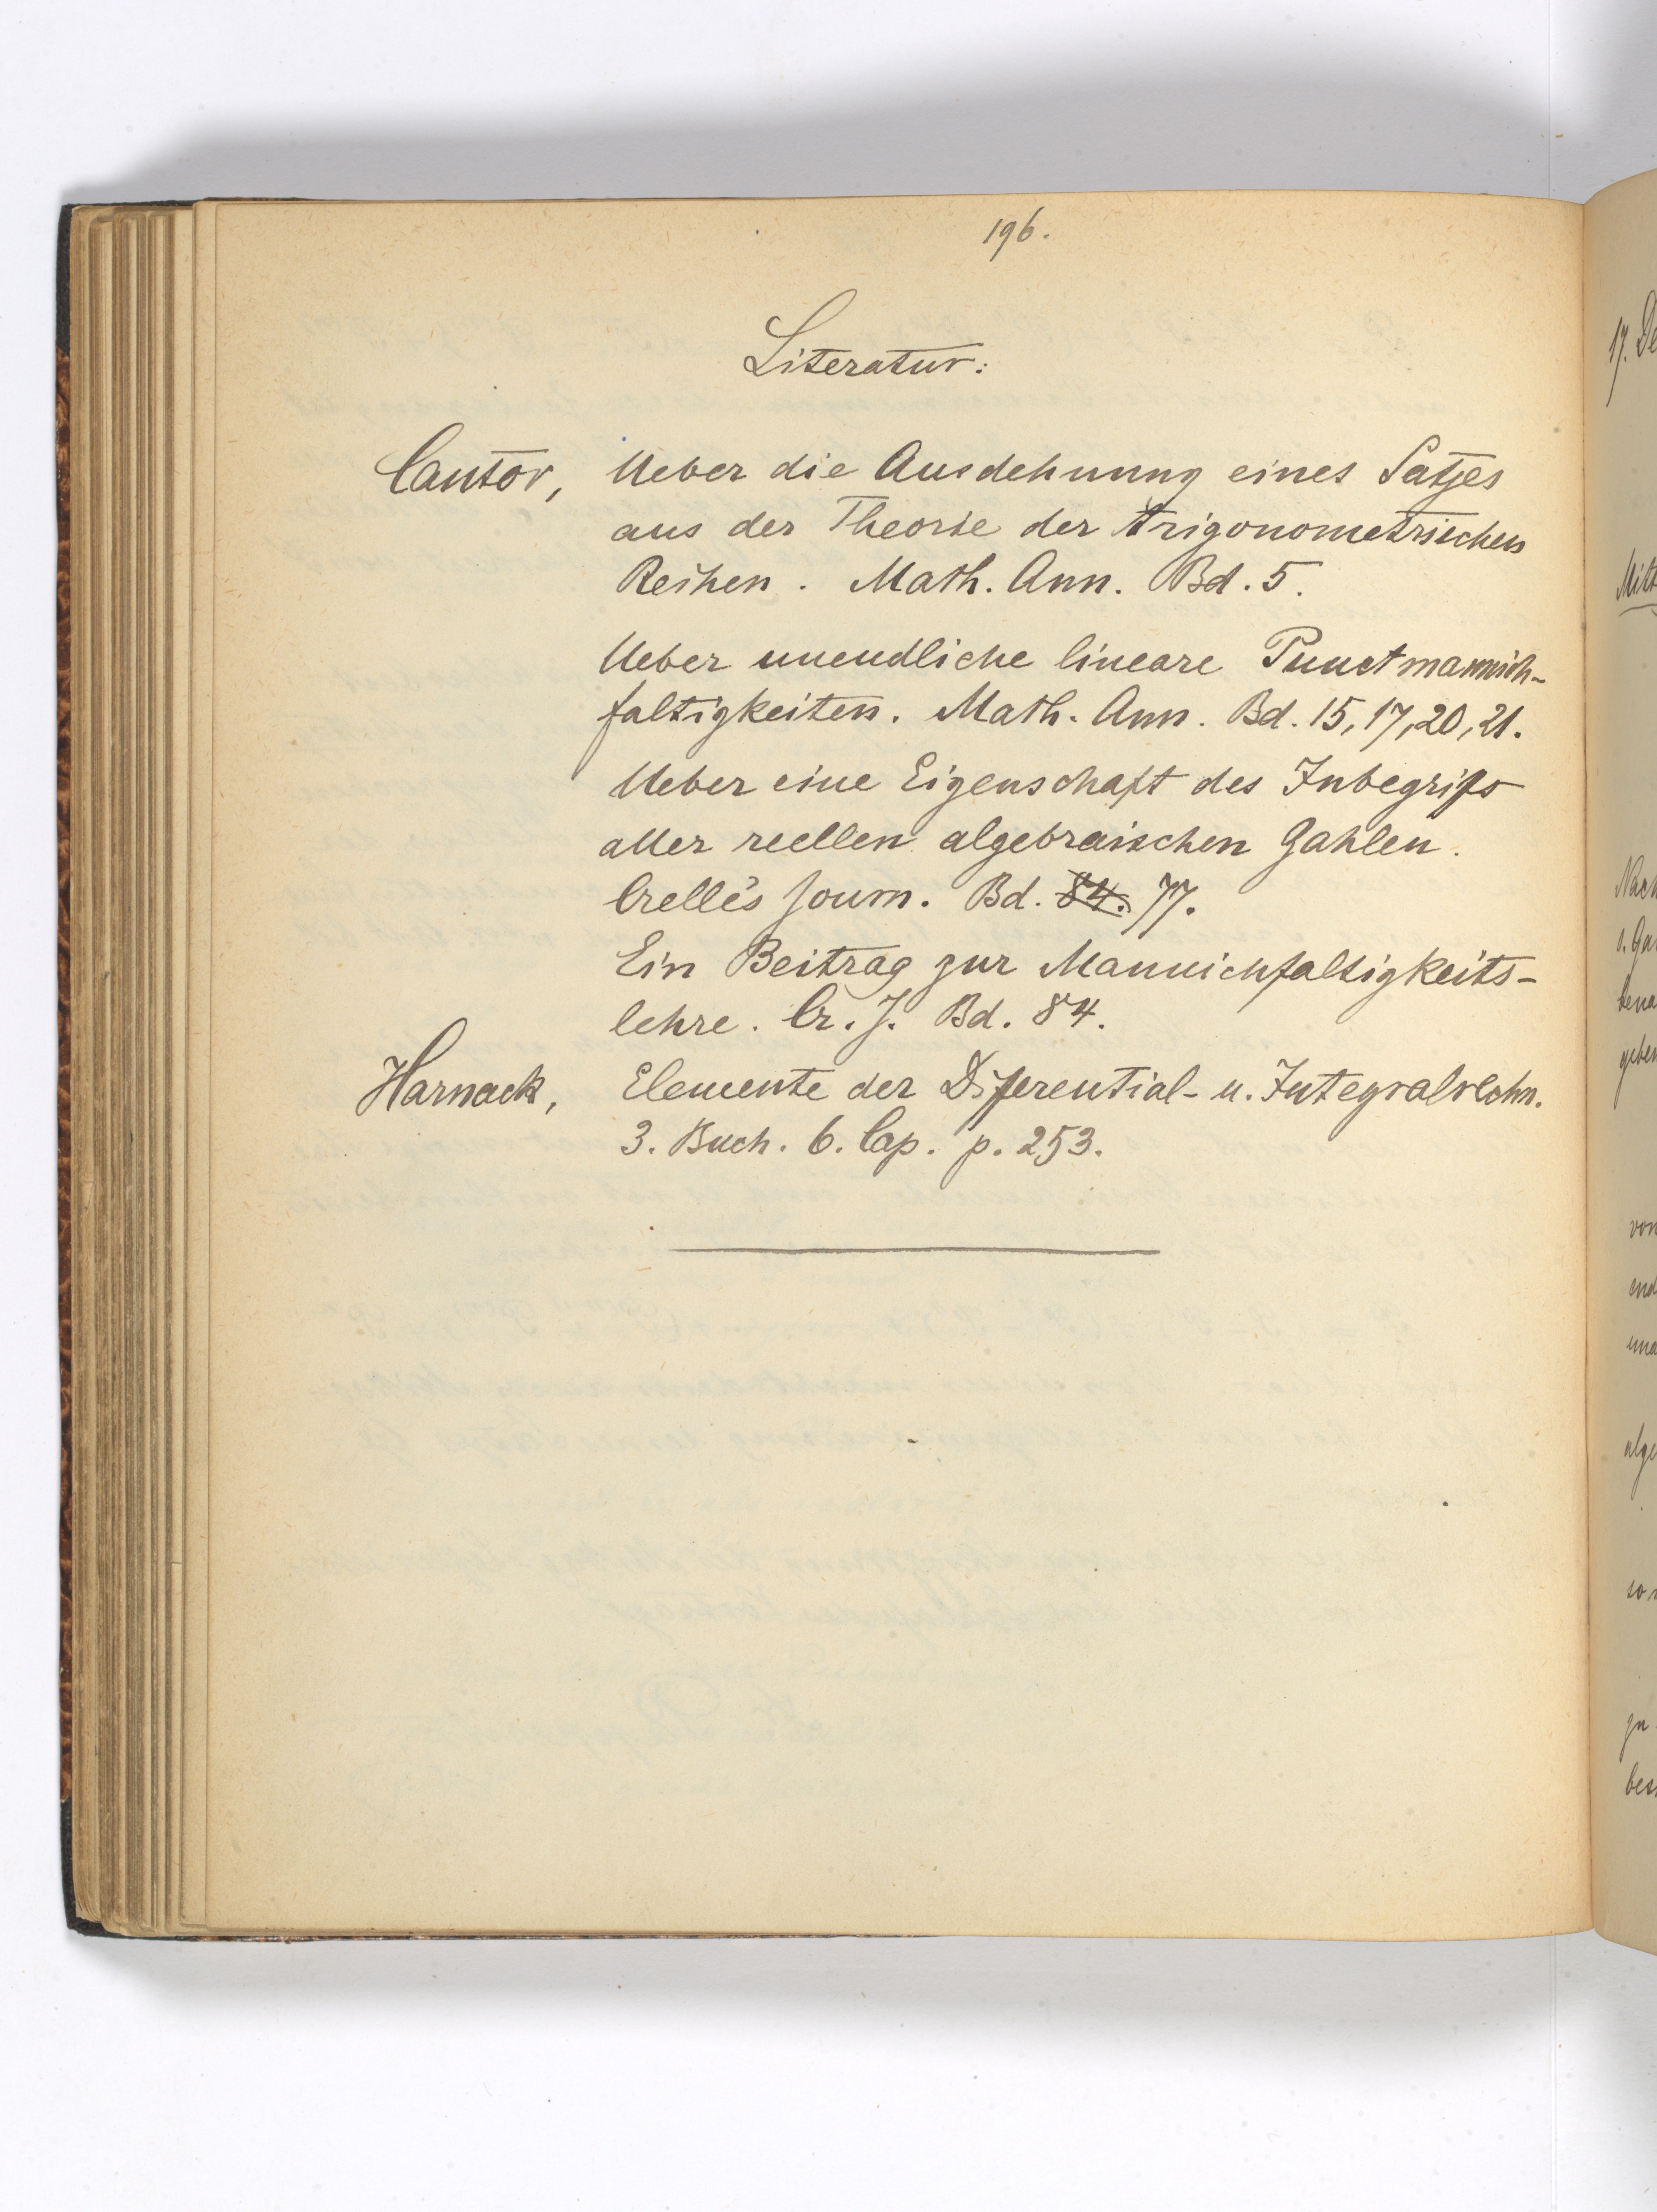 196.
Literatur:
Cantor, Ueber die Ausdehnung eines Satzes
aus der Theorie der trigonometrischen
Reihen. Math. Ann. Bd. 5.
Ueber unendliche lineare Punctmannich-
faltigkeiten. Math. Ann. Bd. 15, 17, 20, 21.
Ueber eine Eigenschaft des Inbegriffs
aller reellen algebraischen Zahlen.
Crelle's Journ. Bd. 84. 77.
Ein Beitrag zur Mannichfaltigkeits-
lehre. Cr. J. Bd. 84.
Harnack, Elemente der Differential- u. Integralrechn.
3. Buch. 6. Cap. p. 253.
17.